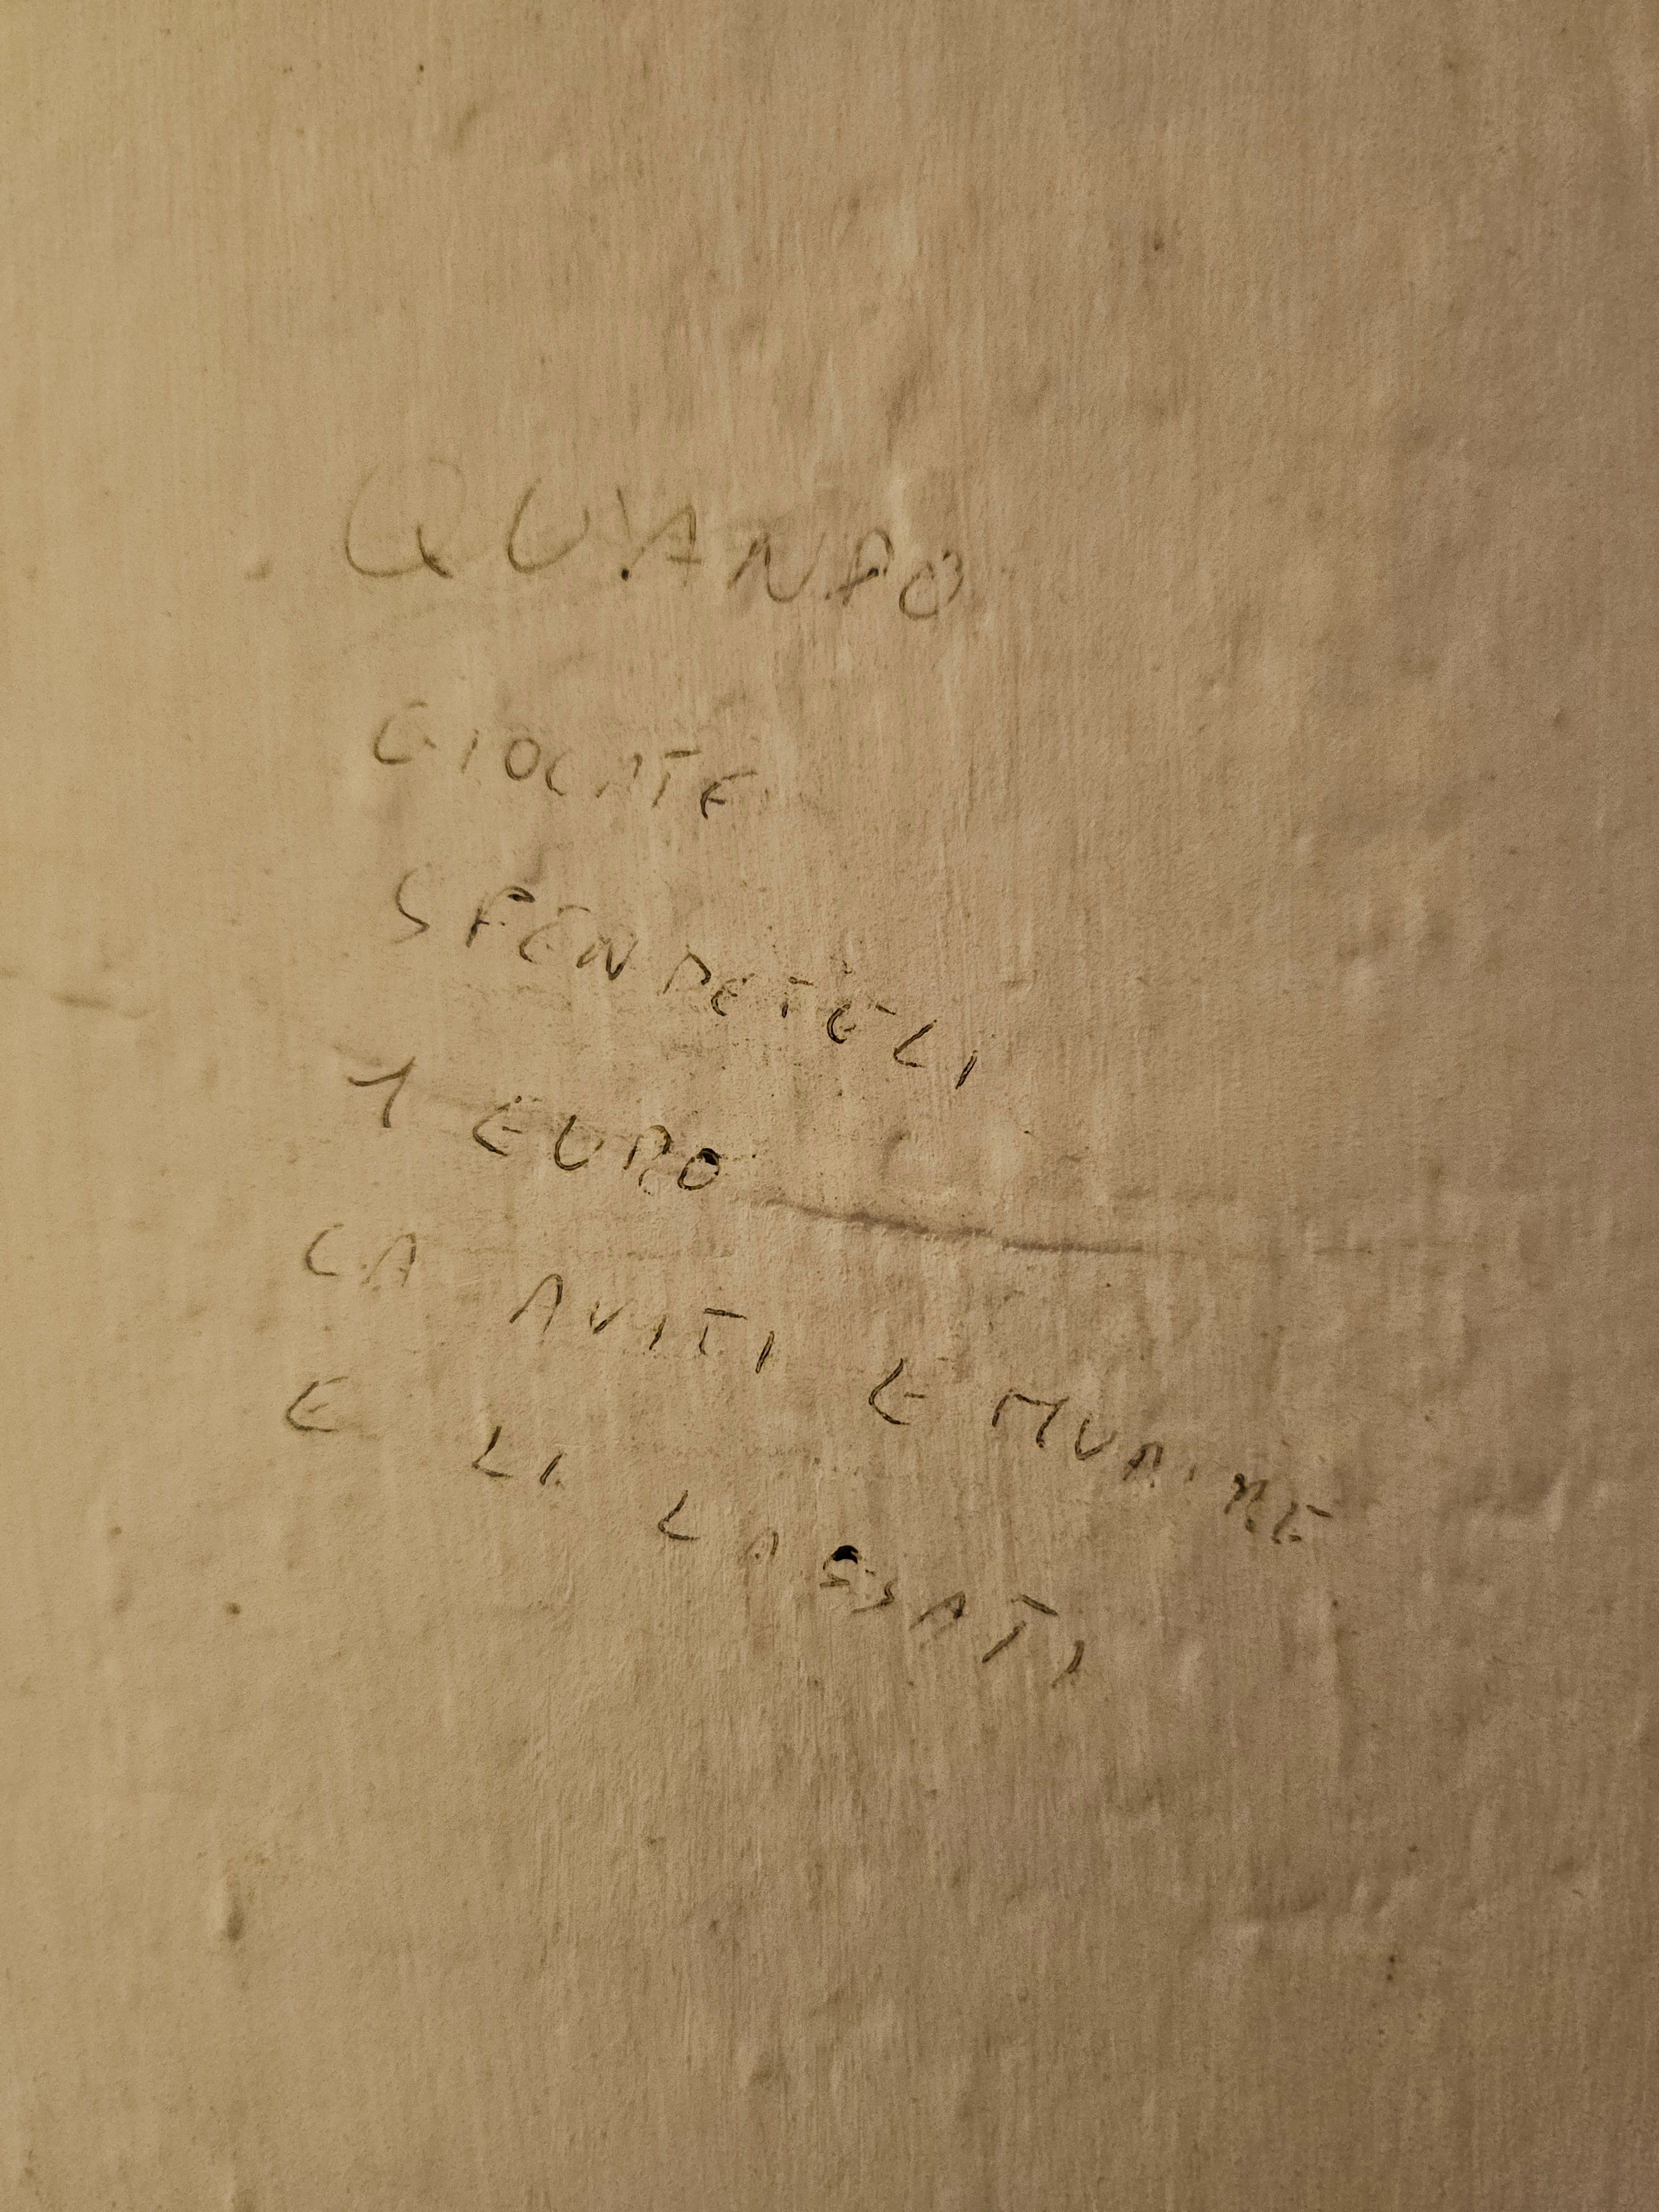 QUANDO
GIOCATE
SPENDETELI
1 EURO
CA AVITI E MURIRE
E LI LASSATI